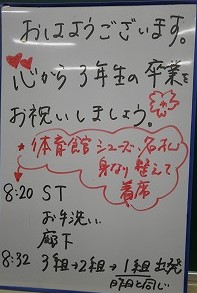 おはようございます。
心から3年生の卒業を
お祝いしましょう。
★体育館シューズ、名札
身なり整えて
着席
8:20 ST
お手洗い
廊下
8:32 3組→2組→1組 出発
昨日と同じ